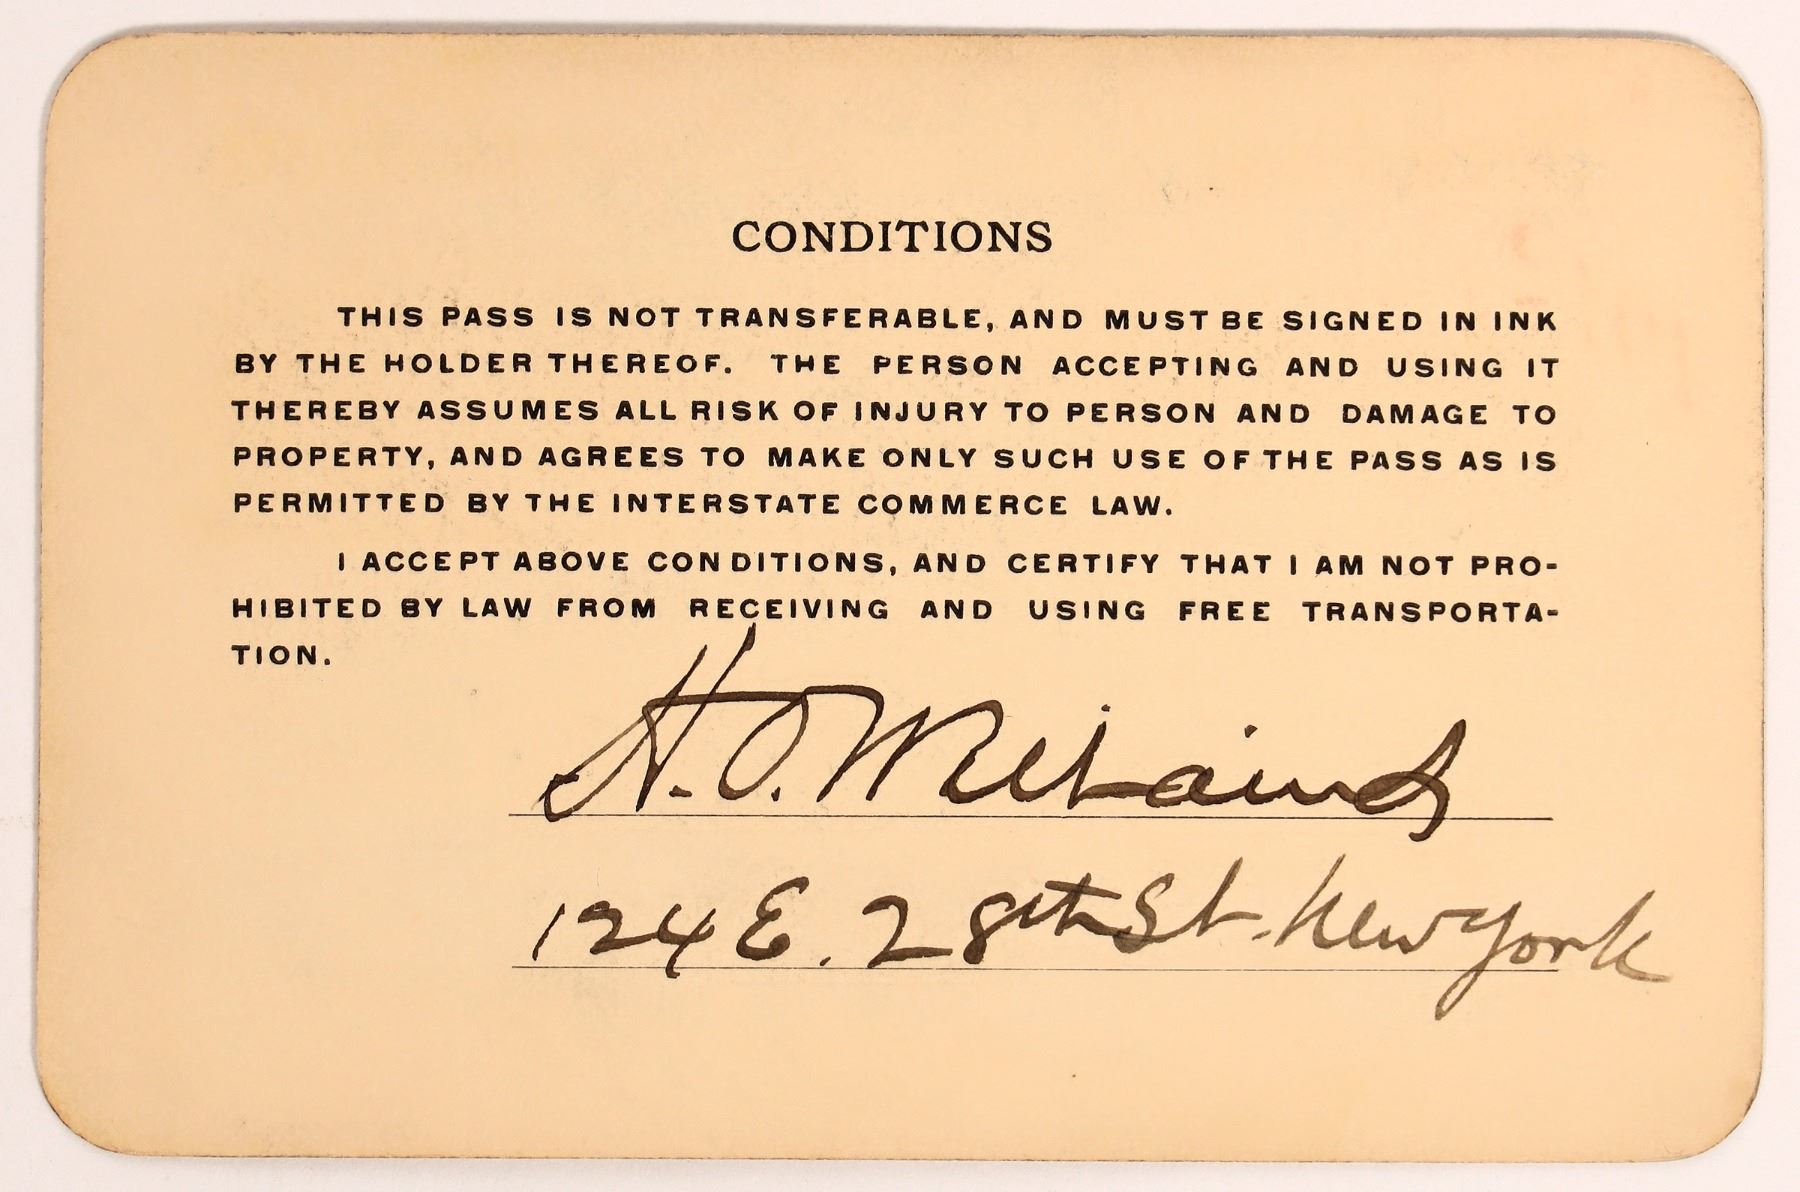 CONDITIONS
THIS PASS IS NOT TRANSFERABLE, AND MUST BE SIGNED IN INK
BY THE HOLDER THEREOF. THE PERSON ACCEPTING AND USING IT
THEREBY ASSUMES ALL RISK OF INJURY TO PERSON AND DAMAGE TO
PROPERTY, AND AGREES TO MAKE ONLY SUCH USE OF THE PASS AS IS
PERMITTED BY THE INTERSTATE COMMERCE LAW.
I ACCEPT ABOVE CONDITIONS, AND CERTIFY THAT I AM NOT PRO-
HIBITED BY LAW FROM RECEIVING AND USING FREE TRANSPORTA-
TION.
H. O.
124 E. 28th St. New York